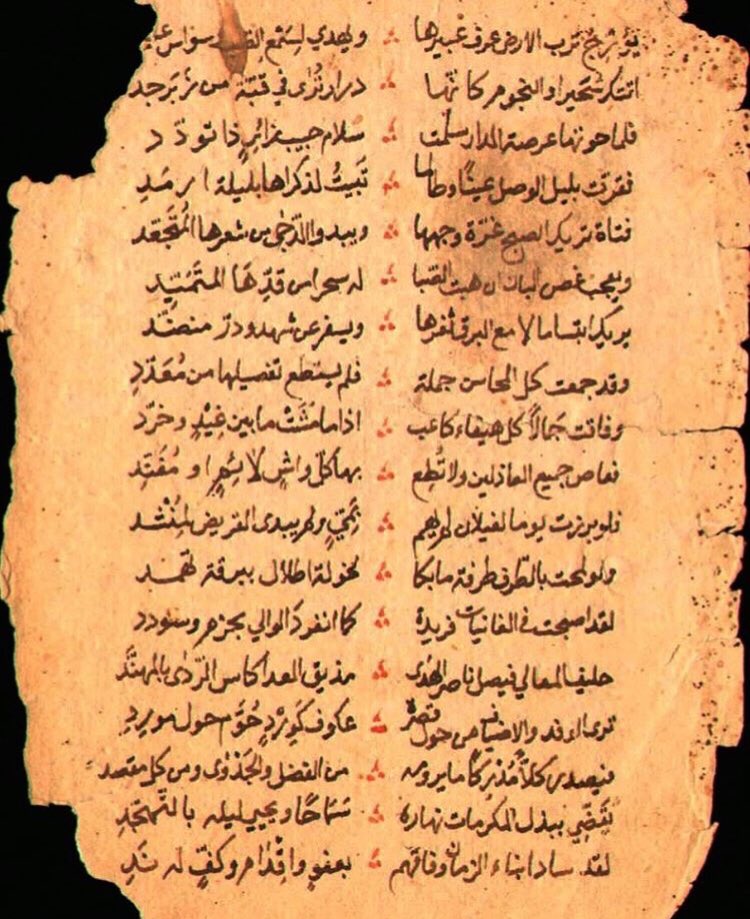 يؤرج ترب الارض عرف عبيرها ؞ ويهدي لسمع
اتتك سحيرا والنجوم كانها ؞ درار تُرى في قبّة من زبرجد
فلما حوتها عرصة الدار سلّمت ؞ سلام حبيب زائرٍ ذا تودّد
فقرت بليل الوصل عيناً وطالما ؞ تَبيتُ لذكراها بليلة ارمَدِ
فتاة تريك الصبح غرّة وجهها ؞ ويبدو الدّجى من شعرها المُتجعّد
ويعجب غصن البان ان هبت الصّبا ؞ له سحرا من قدِّهَا المتمَيّدِ
يريك ابتساما لامع البرق ثغرها ؞ ويسفر عن شهد ودرّ منضّد
وقد جمعت كل المحاسن جملة ؞ فلم يستطع تفصيلها من مُعَدِّدِ
وفاقت جَمالاً كل هيفاء كاعب ؞ اذا ما مَشَتْ ما بين غِيْدٍ وخرّد
فعاص جميع العاذلين ولا تُطِع ؞ بها كل واشٍ لائمٍ او مُفَنِّدِ
فلو برزت يوما لغيلان لم يهم ؞ بميٍّ ولم يبدى القريض لمُنْشد
ولو لمحت بالطرف طرفة ما بكا ؞ لخولة اطلال ببرقة ثهمد
لقد اصبحت في الغانيات فريدة ؞ كما انفرد الوالي بحزم وسودد
حليف المعالي فيصل ناصر الهُدى ؞ مذيق العدا كاس الرّدى بالمهنّد
ترى الوفد والاضياف من حول قصره ؞ عكوف كَوِرْدٍ حُوَّم حول موردِ
فيصدر كلاًّ مُدْرِكًا ما يرومه ؞ من الفضل والجَدْوى ومن كل مقصد
يُقَضّي ببذل المكرمات نهاره ؞ سَمَاحًا ويحيي ليله بالتّهجّدِ
لقد ساد ابناء الزمان وفاقهم ؞ بعفوٍ واِقْدام وكفٍّ له نَدِ